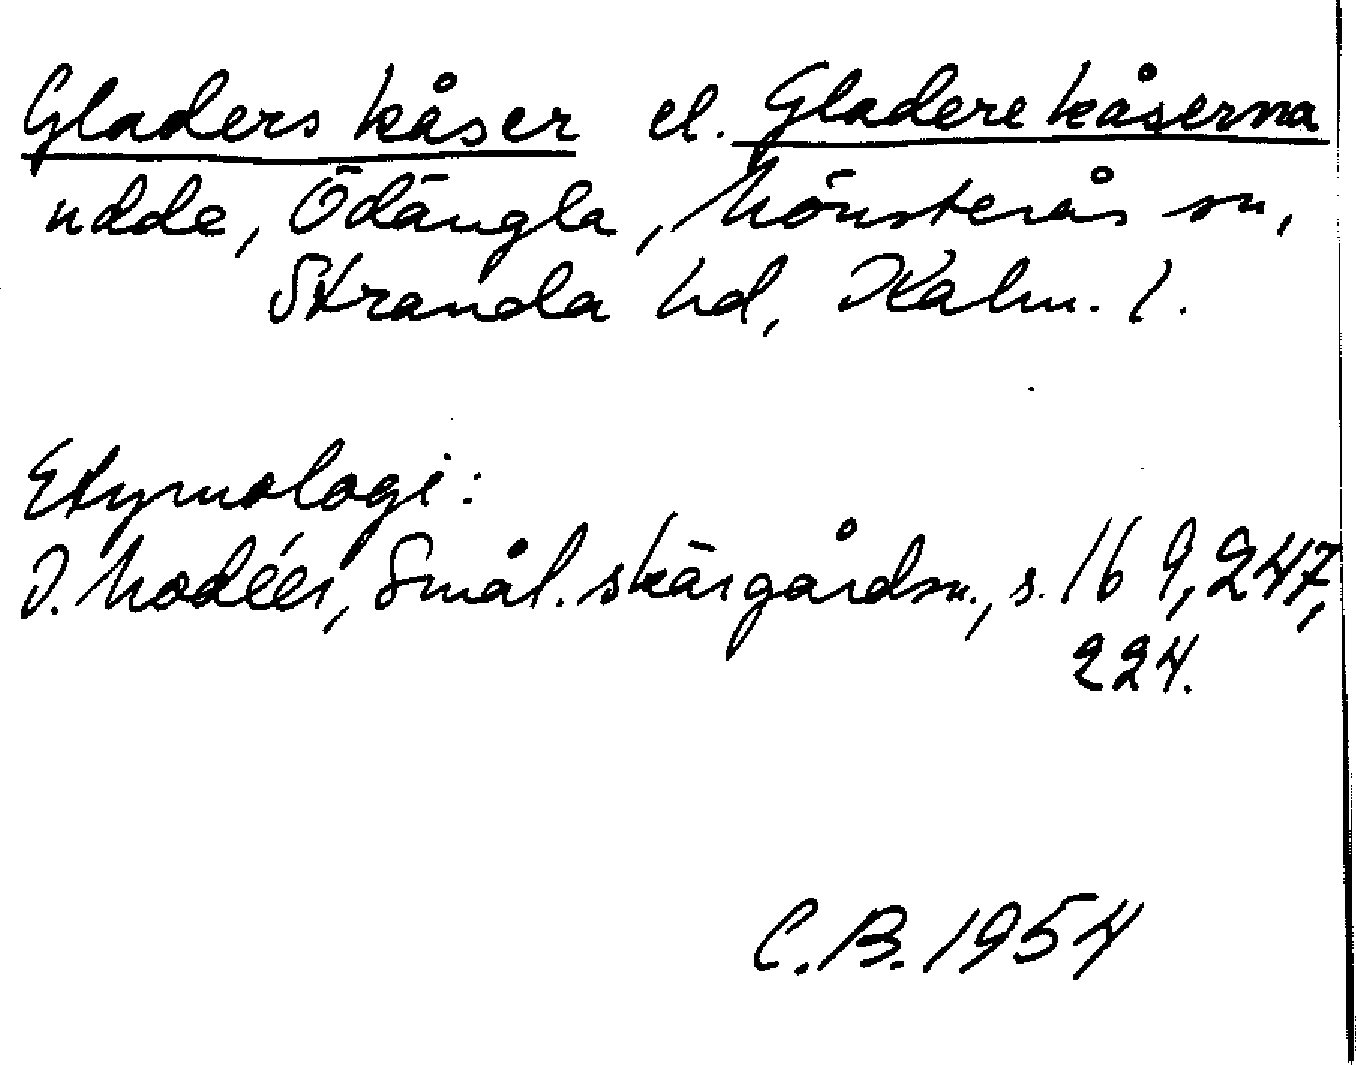 Gladers kåser el. Gladere kåserna
udde, Ödängla, Mönsterås sn,
Stranda hd, Kalm. l.
Etymologi:
I. Modéer, Smål. skärgårdsn., s. 169, 247,
224.
C.B. 1954